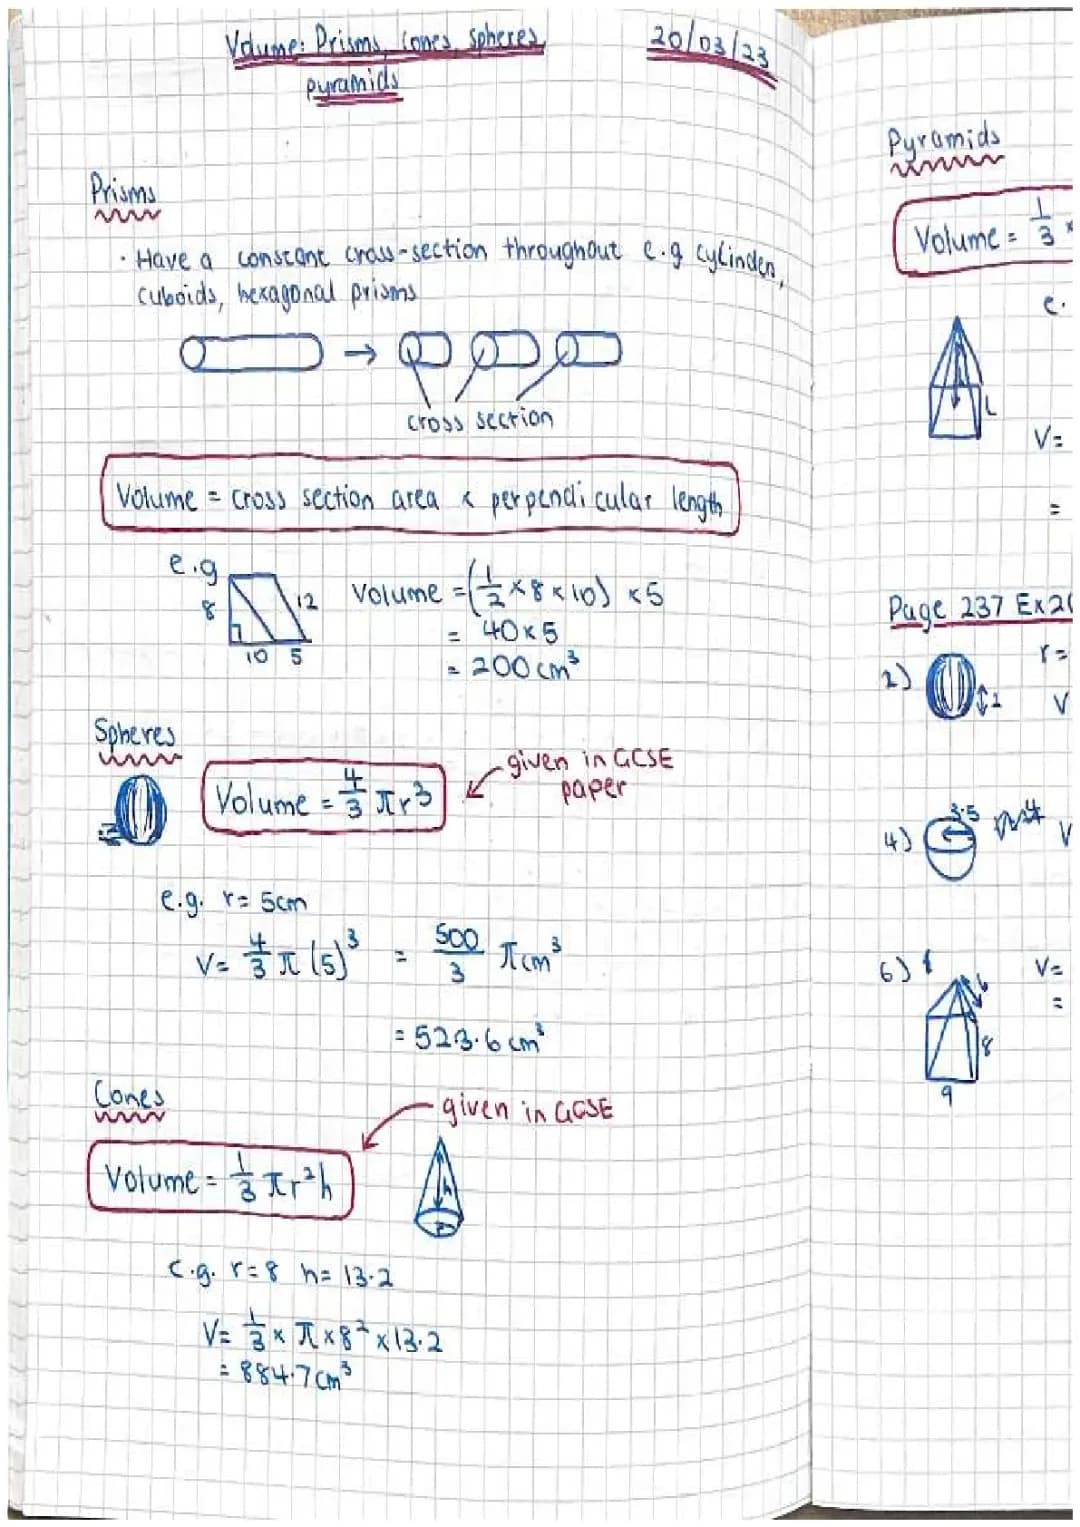 Volume: Prisms, cones, spheres,
pyramids
20/03/23
Prisms
· Have a constant cross-section throughout e.g cylinders,
cuboids, hexagonal prisms
→
cross section
Volume = cross section area × perpendicular length
e.g
8
12
10 5
Volume = (1/2 × 8 × 10) × 5
= 40 × 5
= 200 cm³
Spheres
Volume = 4/3 πr³
given in GCSE
paper
e.g. r = 5cm
V = 4/3 π (5)³ = 500/3 π cm³
= 523.6 cm³
Cones
given in GCSE
Volume = 1/3 πr²h
h
r
e.g. r = 8 h = 13.2
V = 1/3 × π × 8² × 13.2
= 884.7 cm³
Pyramids
Volume = 1/3 ×
e.
L
V =
=
Page 237 Ex 20
2)
r =
V
4)
3.5
V
6)
6
8
9
V =
=